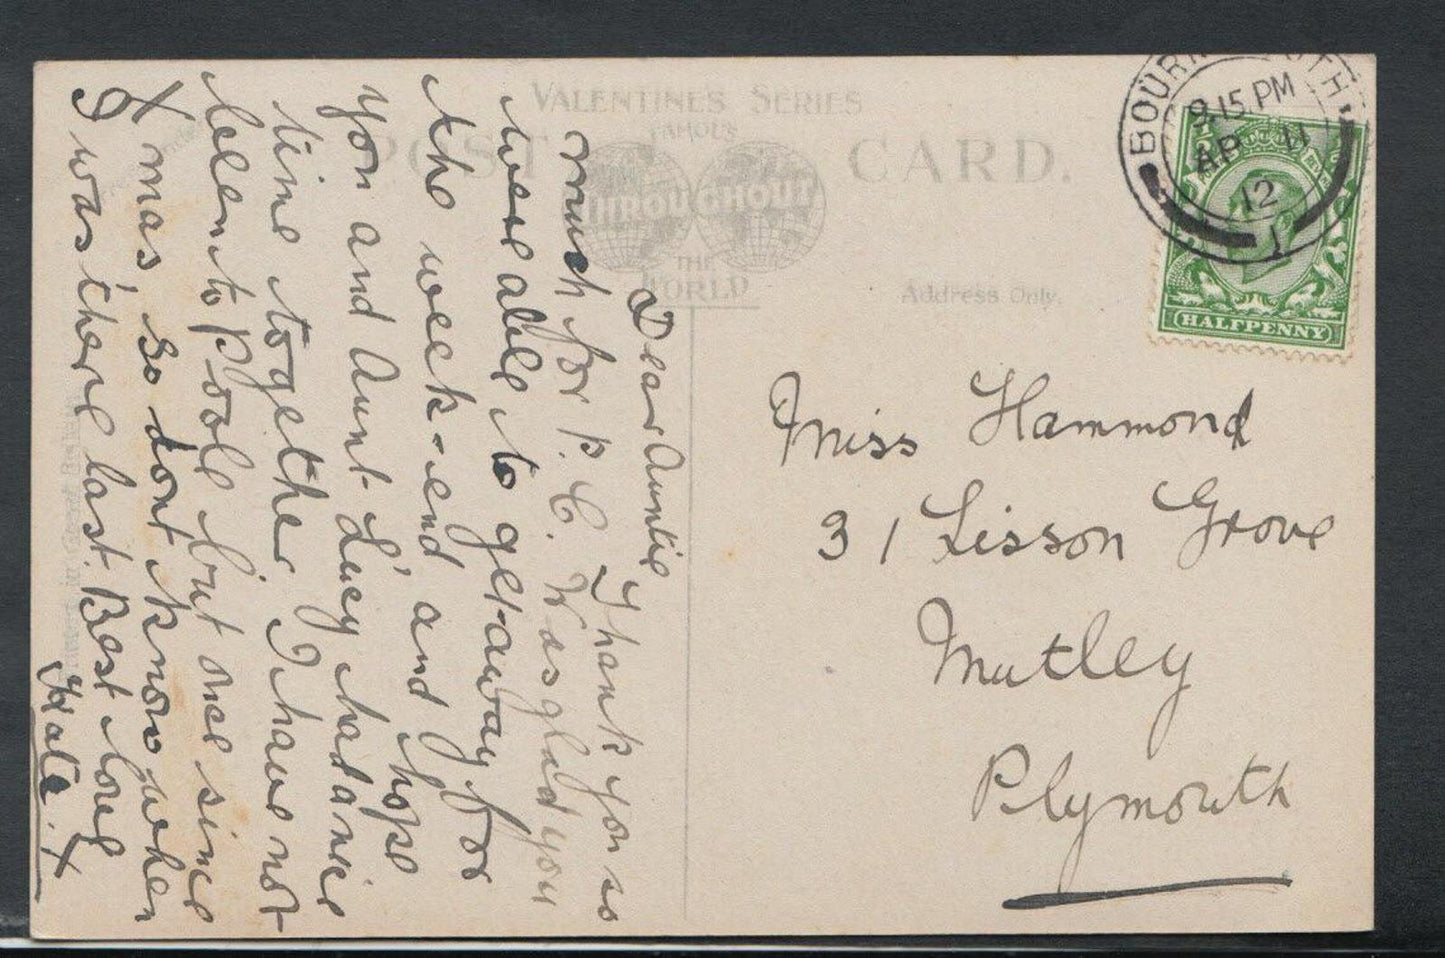 VALENTINE'S SERIES
FAMOUS
POST CARD.
THROUGHOUT
THE
WORLD
Address Only.
BOURNEMOUTH
9.15 PM
AP 11
12
1
HALFPENNY
Dear Auntie, Thank you so
much for p. C. Was glad you
were able to get away for
the week-end, and hope
you and Aunt Lucy had a nice
time together I have not
been to Poole but once since
X mas, so dont know when
I was there last. Best love
Kate. X
Miss Hammond
31 Lisson Grove
Mutley
Plymouth